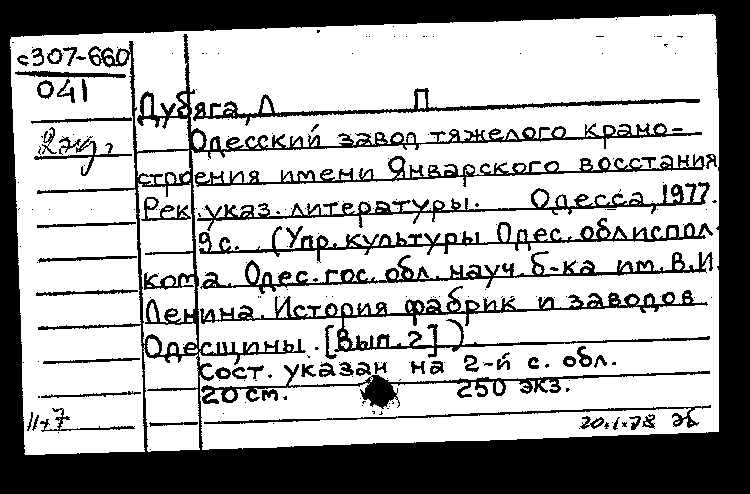 с307-660
041
2 экз.
Дубяга, Л П
Одесский завод тяжелого крано-
строения имени Январского восстания
Рек. указ. литературы. Одесса, 1977.
9 с. (Упр. культуры Одес. облиспол-
кома. Одес. гос. обл. науч. б-ка им. В.И.
Ленина. История фабрик и заводов
Одесщины. [Вып. 2] ).
Сост. указан на 2-й с. обл.
20 см. 250 экз.
20.1.78